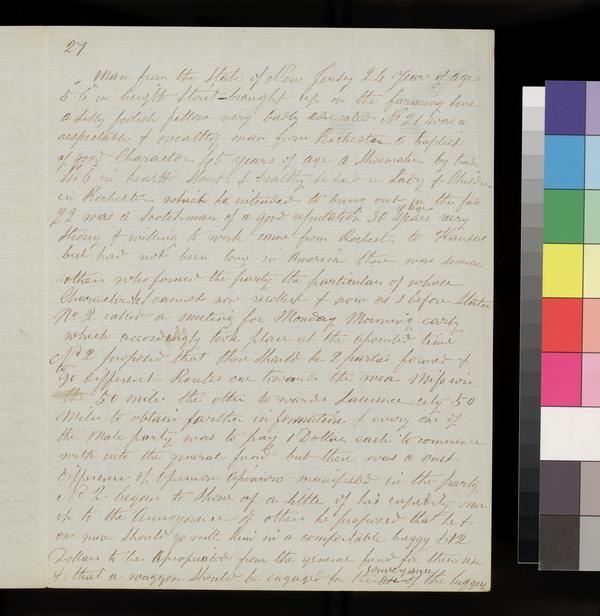 27
Man from the State of New Jersey 24 Years of age
5"6" in heigth Stout brought up in the farming line
a silly foolish fellow very badly educated No 21 was a
respectable & wealthy man from Rochester a Baptist
of good Character 45 years of age a Shoemaker by trade
in health Stout & healthy he had a Lady & Children
in Rochester which he intended to bring out in the fall
22 was a Scotchman of a good reputation 30 Years of age very
Strong & willing to work came from Rochest. to Kansas
but had not been long in America there was several
others who formed the party the particulars of whose
Characters I cannot now recollect & now as I before Stated
No. 2 called a meeting for Monday Morning early
which accordingly took place at the apointed time
No 2 proposed that there should be 2 parties formed &
to go different Routes one towards the near
the 50 miles the other towards Lawrence city 50
Miles to obtain farther information & every one of
the Male party was to pay 1 Dollar each to commence
with into the general fund but there was a vast
difference of Opinion manifested in the party
No 2 began to Show of a little of his cupidity
up to the Annoyance of others he proposed that he &
one more should go with him in a comfortable buggy & 12
Dollars to be Apropriated from the general fund for their use
& that a waggon should be engaged for the conveyance of the luggage